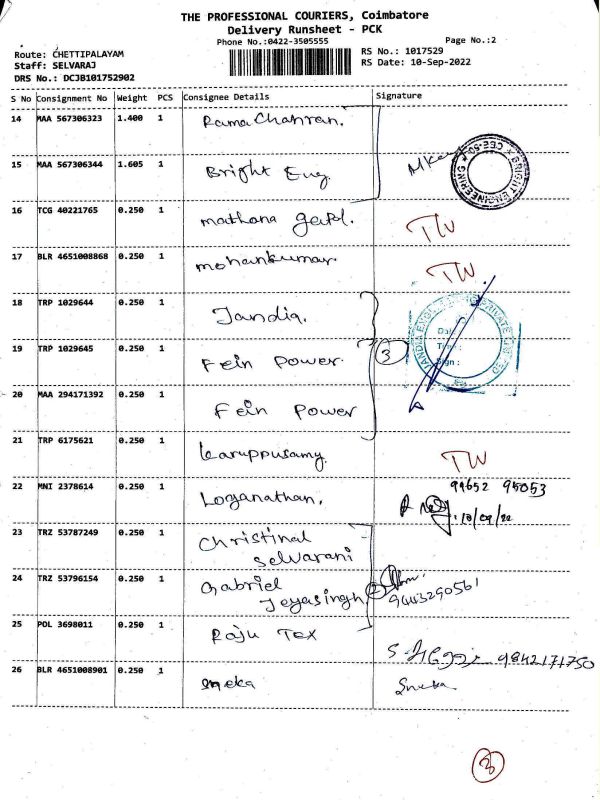 THE PROFESSIONAL COURIERS, Coimbatore
Delivery Runsheet - PCK
Phone No.:0422-3505555 Page No.:2
Route: CHETTIPALAYAM RS No.: 1017529
Staff: SELVARAJ RS Date: 10-Sep-2022
DRS No.: DCJB101752902
S No Consignment No Weight PCS Consignee Details Signature
14 MAA 567306323 1.400 1 Rama Chanran.
15 MAA 567306344 1.605 1 Bright Eng.
BRIGHT ENGINEERING CBE-50
16 TCG 40221765 0.250 1 mathana TW
17 BLR 4651008868 0.250 1 mohankumar. TW
18 TRP 1029644 0.250 1 Jandia.
19 TRP 1029645 0.250 1 Fein Power. 3
20 MAA 294171392 0.250 1 Fein Power
21 TRP 6175621 0.250 1 karuppusamy. TW
22 MNI 2378614 0.250 1 Loganathan. 99652 95053
10/09/22
23 TRZ 53787249 0.250 1 Christinal
Selvarani
24 TRZ 53796154 0.250 1 Gabriel
Jeyasingh 2 9443290561
25 POL 3698011 0.250 1 Raju Tex
9842171750
26 BLR 4651008901 0.250 1 Sneka Sneka